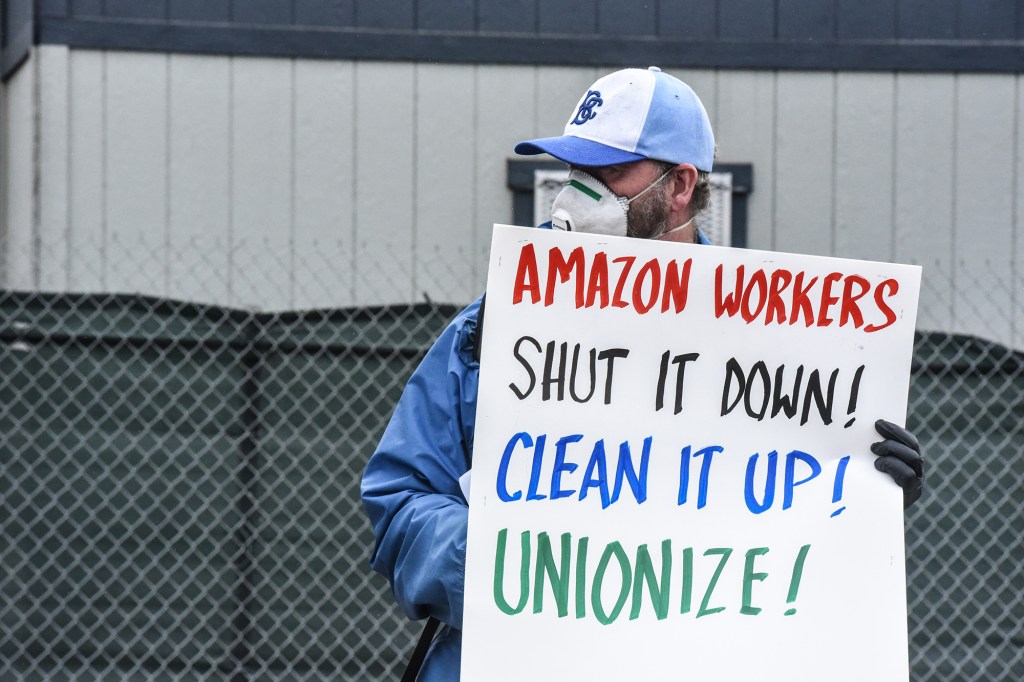 BC
AMAZON WORKERS
SHUT IT DOWN!
CLEAN IT UP!
UNIONIZE!